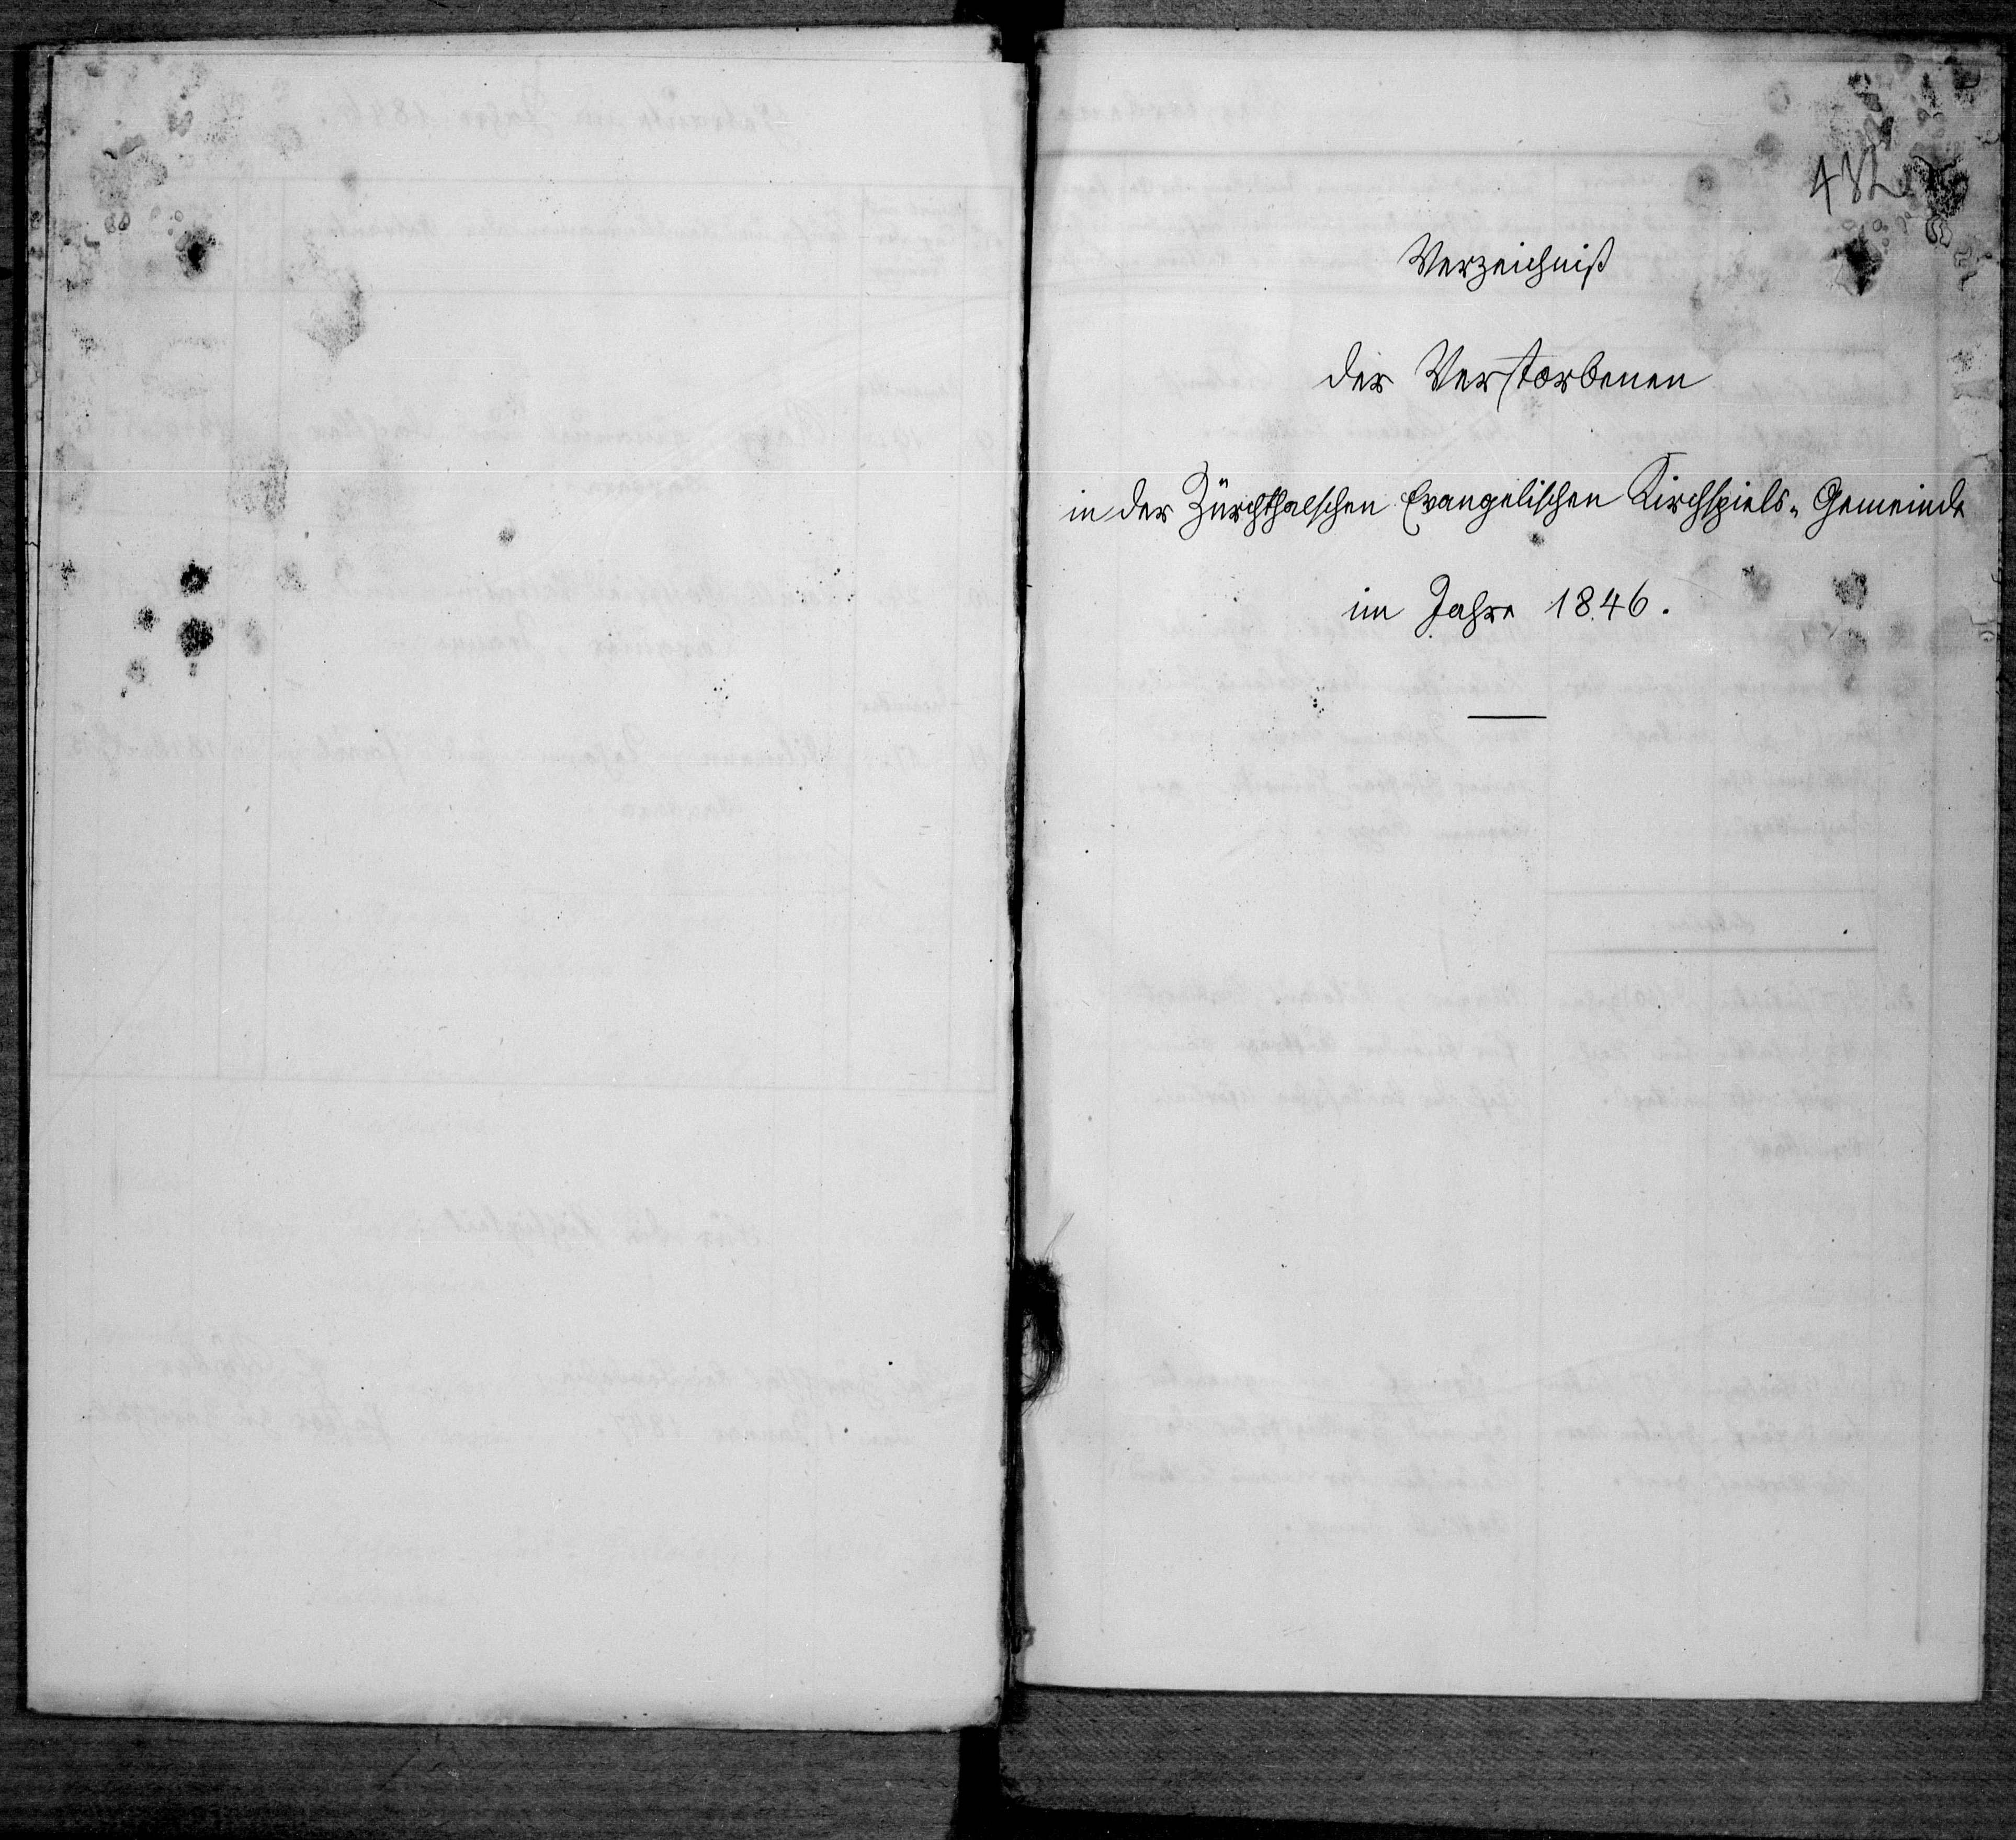 482
Verzeichniß
der Verstorbenen
in der Zürchthalschen Evangelischen Kirchspiels-Gemeinde
im Jahre 1846.